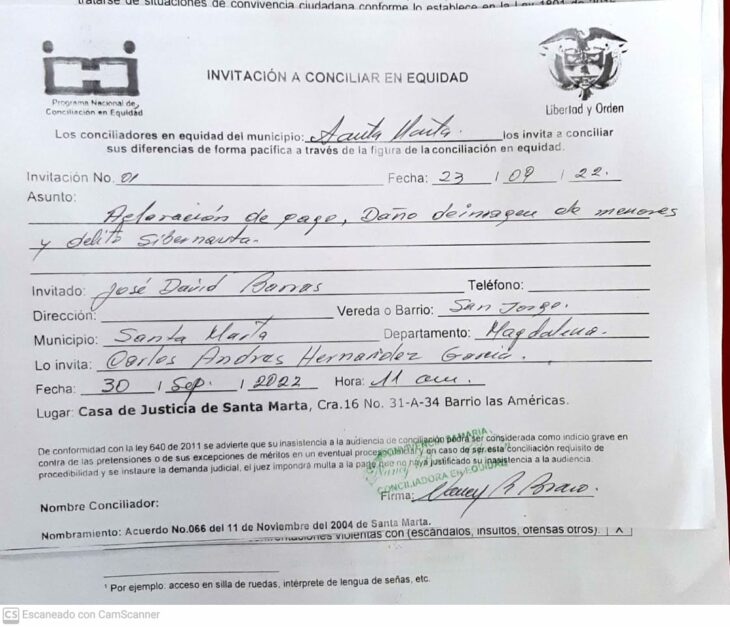 tratarse de situaciones de convivencia ciudadana conforme lo establece en la Ley 1801
Programa Nacional de
Conciliación en Equidad
INVITACIÓN A CONCILIAR EN EQUIDAD
Libertad y Orden
Los conciliadores en equidad del municipio: Santa Marta. los invita a conciliar
sus diferencias de forma pacifica a través de la figura de la conciliación en equidad.
Invitación No. 01 Fecha: 23 / 09 / 22.
Asunto:
Aclaración de pago, Daño deimagen de menores
y delito Sibernauta.
Invitado: José David Barros Teléfono:
Dirección: Vereda o Barrio: San Jorge.
Municipio: Santa Marta Departamento: Magdalena.
Lo invita: Carlos Andres Hernandez Garcia.
Fecha: 30 / Sep. / 2022 Hora: 11 am.
Lugar: Casa de Justicia de Santa Marta, Cra.16 No. 31-A-34 Barrio las Américas.
De conformidad con la ley 640 de 2011 se advierte que su inasistencia a la audiencia de conciliación podrá ser considerada como indicio grave en
contra de las pretensiones o de sus excepciones de méritos en un eventual proceso y en caso de ser esta conciliación requisito de
procedibilidad y se instaure la demanda judicial, el juez impondrá multa a la que no haya justificado su inasistencia a la audiencia.
CONCILIADORA EN EQUIDAD
Firma: Nancy R Bravo.
Nombre Conciliador:
Nombramiento: Acuerdo No.066 del 11 de Noviembre del 2004 de Santa Marta.
violentas con (escándalos, insultos, ofensas otros). X
¹ Por ejemplo: acceso en silla de ruedas, intérprete de lengua de señas, etc.
CS Escaneado con CamScanner